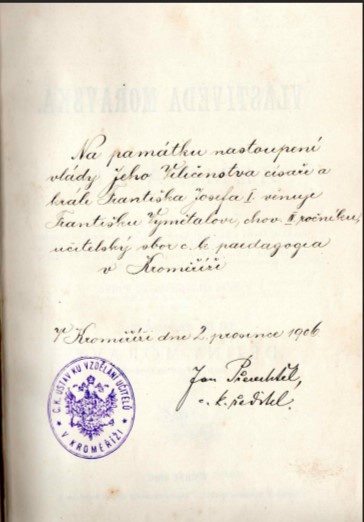 VLASTIVĚDA MORAVSKÁ.
Na památku nastoupení
vlády Jeho Veličenstva císaře a
krále Františka Josefa I. věnuje
Františku Vymětalovi, chov. II. ročníku,
učitelský sbor c. k. paedagogia
v Kroměříži
V Kroměříži dne 2. prosence 1906.
Jan
c. k. ředitel.
C. K. ÚSTAV KU VZDĚLÁNÍ UČITELŮ
V KROMĚŘÍŽI